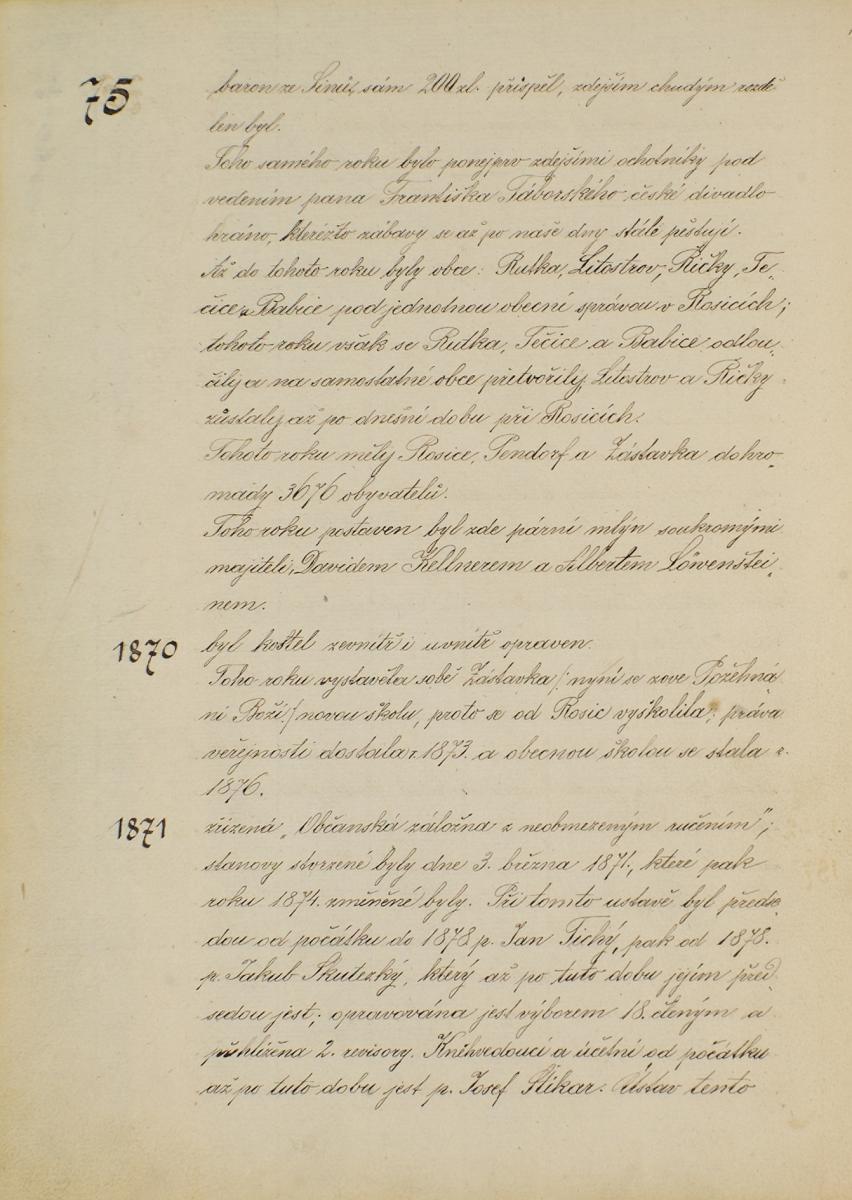 75
baron ze Sinů, sám 200 zl. přispěl, zdejším chudým rozdě
len byl.
Toho samého roku bylo ponejprv zdejšími ochotníky pod
vedením pana Františka Táborského české divadlo
hráno, kteréžto zábavy se až po naše dny stále pěstují.
Až do tohoto roku byly obce: Rutka, Litostrov, Řičky, Te„
čice a Babice pod jednotnou obecní správou v Rosicích;
tohoto roku však se Rutka, Tečice a Babice odlou„
čily a na samostatné obce přetvořily, Litostrov a Řičky
zůstaly až po dnešní dobu při Rosicích.
Tohoto roku měly Rosice, Pendorf a Zástavka dohro„
mady 3676 obyvatelů.
Toho roku postaven byl zde pární mlýn soukromými
majiteli, Davidem Kellnerem a Albertem Löwenštei„
nem.
1870 byl kostel zevnitř i uvnitř opraven.
Toho roku vystavěla sobě Zástavka /: nyní se zove Požehná
ní Boží:/ novou školu, proto se od Rosic vyškolila; práva
veřejnosti dostala r. 1873. a obecnou školou se stala r.
1876.
1871 zřízená „Občanská záložna z neobmezeným ručením";
stanovy stvrzené byly dne 3. března 1871., které pak
roku 1874. změněné byly. Při tomto ustavě byl předse„
dou od počátku do 1878 p. Jan Tichý, pak od 1878.
p. Jakub Skutezký, který až po tuto dobu jejím před„
sedou jest; opravována jest výborem 18. členým a
přihlížena 2. revisory. Knihvedoucí a účetní od počátku
až po tuto dobu jest p. Josef Štikar. Ústav tento